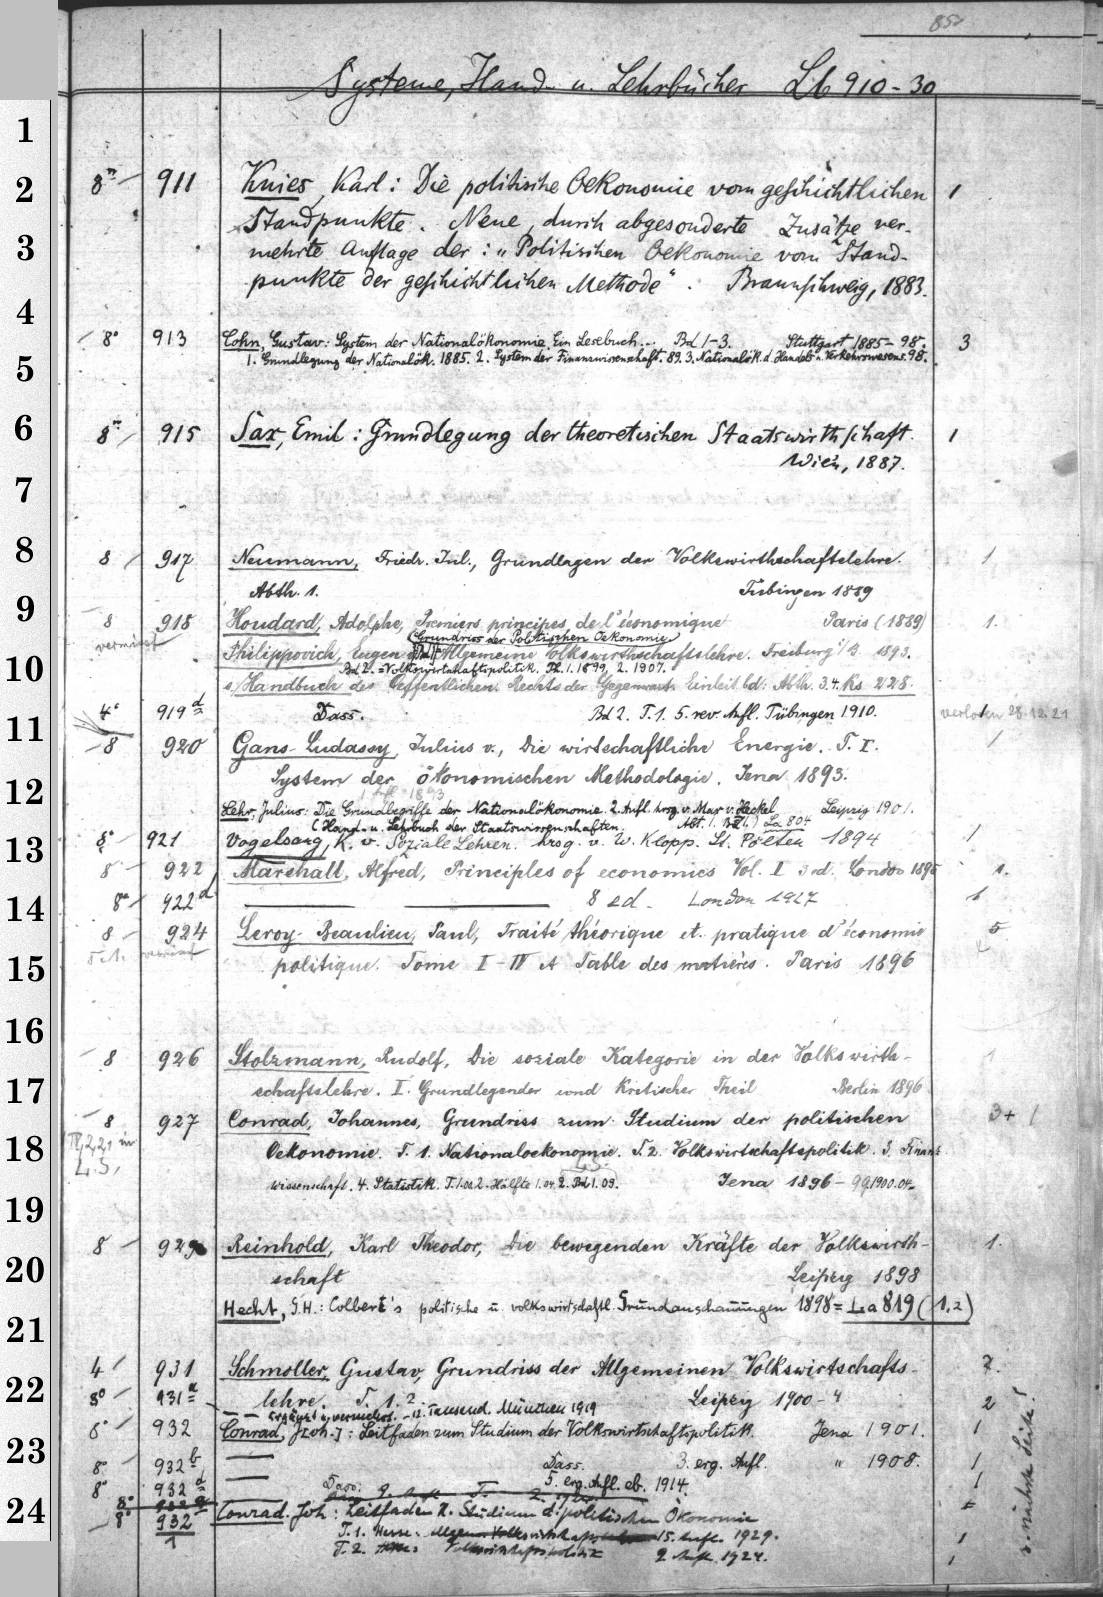 Systeme, Hand- u. Lehrbücher Lb 910-30
1
2 8° 911 Knies, Karl: Die politische Oekonomie vom geschichtlichen 1
Standpunkte. Neue, durch abgesonderte Zusätze ver-
3 mehrte Auflage der: „Politischen Oekonomie vom Stand-
punkte der geschichtlichen Methode“. Braunschweig, 1883.
4
8° 913 Cohn, Gustav: System der Nationalökonomie. Ein Lesebuch... Bd 1-3. Stuttgart 1885-98. 3
5 1. Grundlegung der Nationalök. 1885. 2. System der Finanzwissenschaft. 89. 3. Nationalök. d. Handels u. Verkehrswesens. 98.
6 8° 915 Sax, Emil: Grundlegung der theoretischen Staatswirthschaft. 1
Wien, 1887.
7
8 8 917 Neumann, Friedr. Jul., Grundlagen der Volkswirthschaftslehre. 1
Abth. 1. Tübingen 1889
9 8 918 Houdard, Adolphe, Premiers principes de l'économique Paris (1889) 1.
vermisst
(Grundriss der Politischen Oekonomie
Philippovich, Eugen Bd 1 Allgemeine Volkswirthschaftslehre. Freiburg i/B. 1893.
10 Bd 2. = Volkswirtschaftspolitik. 1. 1899, 2. 1907.
s. Handbuch des Oeffentlichen Rechts der Gegenwart Einleit. bd: Abth. 3.4. Ks 228.
11 4° 919 d Dass. Bd 2. T. 1. 5. rev. Aufl. Tübingen 1910. verloren 28.12.21
8 920 Gans-Ludassy, Julius v., Die wirtschaftliche Energie. T. I. 1
System der ökonomischen Methodologie. Jena 1893.
12 Lehr, Julius: Die Grundbegriffe der Nationalökonomie. 2. Aufl. hrsg. v. Max v. Heckel Leipzig 1901.
(Hand- u. Lehrbuch der Staatswissenschaften. Abt. 1. Bd 1.) La 804
13 8° 921 Vogelsang, K. v. Soziale Lehren. hrsg. v. W. Klopp. St. Pölten 1894 1
8° 922 Marshall, Alfred, Principles of economics Vol. I 3rd. London 1895 1.
14 8° 922 d 8 ed. London 1927 1
8 924 Leroy-Beaulieu, Paul, Traité théorique et pratique d'économie 5
15 politique. Tome I-IV et Table des matières. Paris 1896
16 8 926 Stolzmann, Rudolf, Die soziale Kategorie in der Volkswirth- 1
17 schaftslehre. I. Grundlegender und Kritischer Theil Berlin 1896
8 927 Conrad, Johannes, Grundriss zum Studium der politischen 3+1
18 Oekonomie. T. 1. Nationaloekonomie. T. 2. Volkswirtschaftspolitik. 3. Finanz
wissenschaft. 4. Statistik. T. 1. 02. 2. Hälfte 1. 04. 2. Bd 1. 09. Jena 1896-99. 1900. 04
19
8 929 Reinhold, Karl Theodor, Die bewegenden Kräfte der Volkswirth- 1.
20 schaft Leipzig 1898
Hecht, G.H.: Colbert's politische u. volkswirtschaftl. Grundanschauungen 1898 = La 819 (1,2)
21
4 931 Schmoller, Gustav, Grundriss der Allgemeinen Volkswirtschafts- 2.
22 8° 931 a lehre. T. 1. 2. Leipzig 1900-4 2
Ergänzt u. vermehrt. Tausend. München 1919
8° 932 Conrad, J[oh.]: Leitfaden zum Studium der Volkswirtschaftspolitik. Jena 1901. 1
23 8° 932 b Dass. 3. erg. Aufl. " 1908. 1
8° 932 d Dass. 5. erg. Aufl. eb. 1914. 1
24 8° 932 Conrad. Joh: Leitfaden z. Studium d. politischen Ökonomie
1 T. 1. 15. Aufl. 1929. 1
T. 2. Volkswirtschaftspolitik 9. Aufl. 1924. 1
s. nächste Seite!